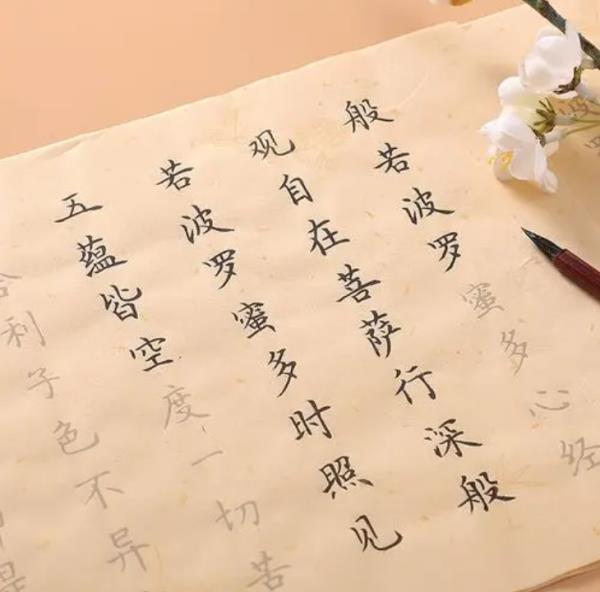 般若波罗蜜多心经
观自在菩萨行深般
若波罗蜜多时照见
五蕴皆空度一切苦
利子色不异
是